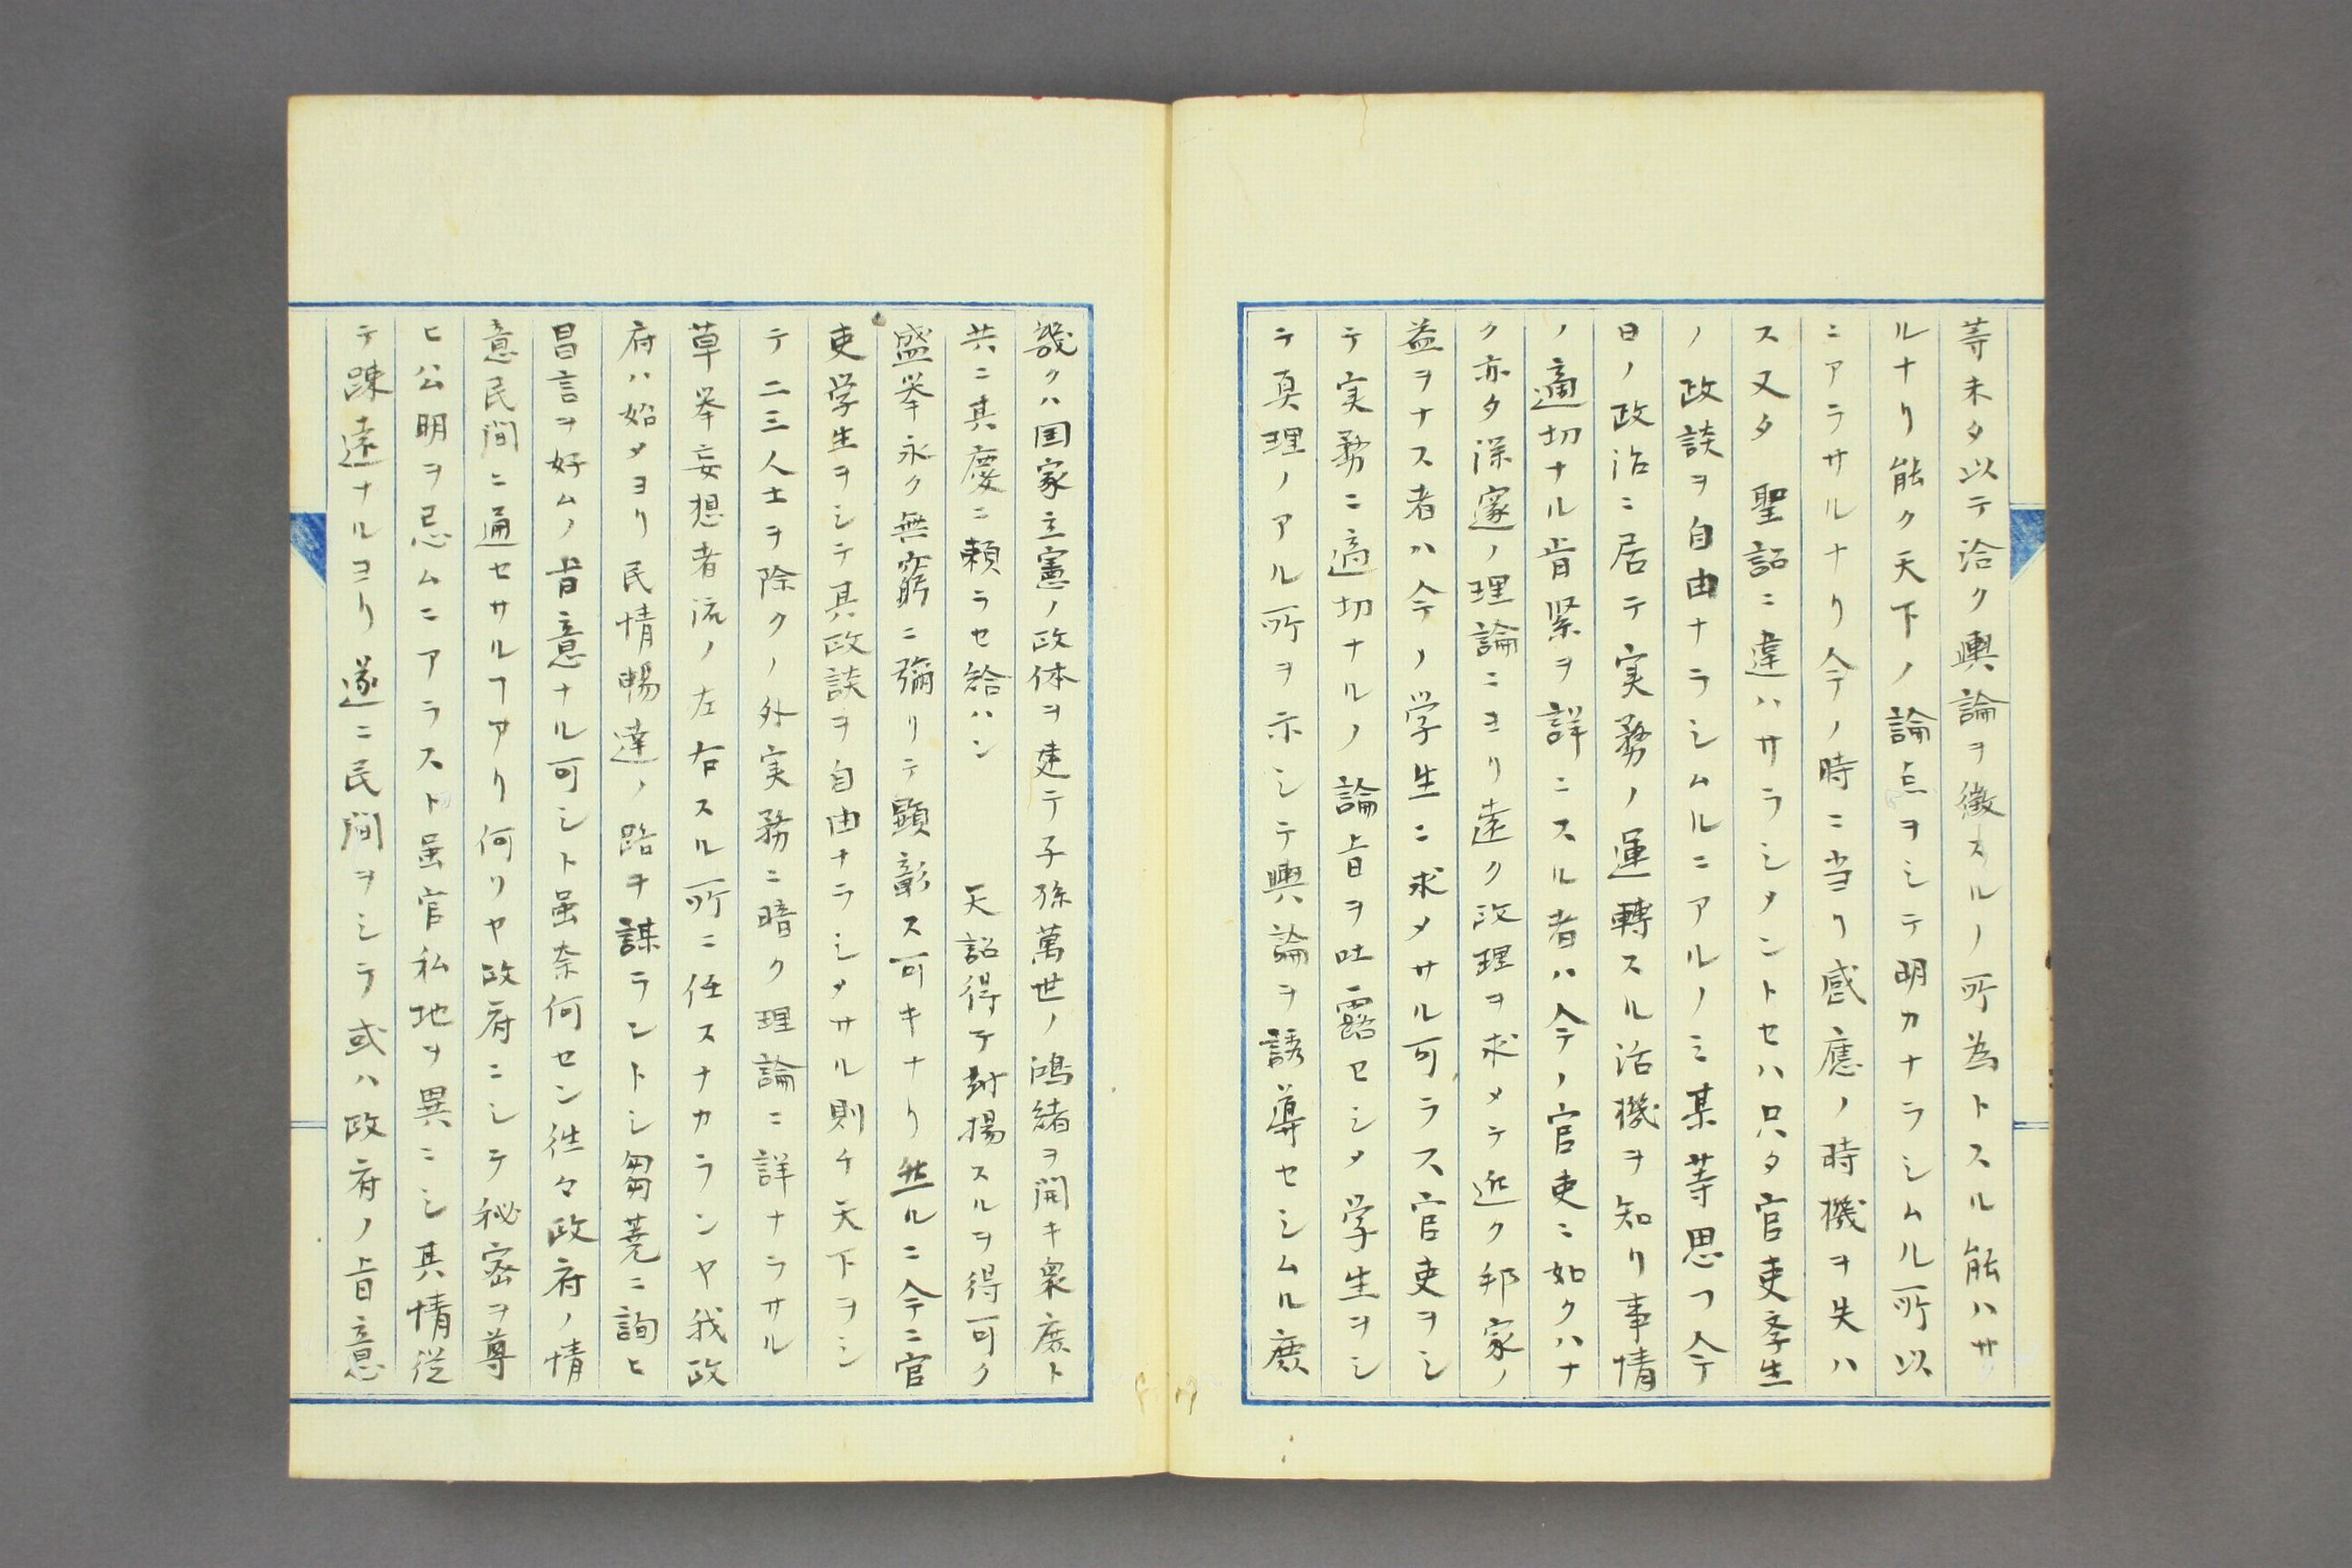 等未タ以テ洽ク輿論ヲ徴スルノ所為トスル能ハサ
ルナリ能ク天下ノ論点ヲシテ明カナラシムル所以
ニアラサルナリ今ノ時ニ当リ感應ノ時機ヲ失ハ
ス又タ聖詔ニ違ハサラシメントセハ只タ官吏学生
ノ政談ヲ自由ナラシムルニアルノミ某等思フ今
日ノ政治ニ居テ実務ノ運轉スル活機ヲ知リ事情
ノ適切ナル肯緊ヲ詳ニスル者ハ今ノ官吏ニ如クハナ
ク亦タ深邃ノ理論ニヨリ遠ク政理ヲ求メテ近ク邦家ノ
益ヲナス者ハ今ノ学生ニ求メサル可ラス官吏ヲシ
テ実務ニ適切ナルノ論旨ヲ吐露セシメ学生ヲシ
テ真理ノアル所ヲ示シテ輿論ヲ誘導セシムル庶
幾クハ国家立憲ノ政体ヲ建テ子孫萬世ノ鴻緒ヲ開キ衆庶ト
共ニ其慶ニ頼ラセ給ハン　天詔得テ対揚スルヲ得可ク
盛挙永ク無窮ニ彌リテ顕彰ス可キナリ然ルニ今ニ官
吏学生ヲシテ其政談ヲ自由ナラシメサル則チ天下ヲシ
テ二三人士ヲ除クノ外実務ニ暗ク理論ニ詳ナラサル
草挙妄想者流ノ左右スル所ニ任スナカランヤ我政
府ハ始メヨリ民情暢達ノ路ヲ謀ラントシ芻蕘ニ詢ヒ
昌言ヲ好ムノ旨意ナル可シト虽奈何セン徃々政府ノ情
意民間ニ通セサルヿアリ何リヤ政府ニシテ秘密ヲ尊
ヒ公明ヲ忌ムニアラスト虽官私地ヲ異ニシ其情従
テ踈遠ナルヨリ遂ニ民間ヲシテ或ハ政府ノ旨意